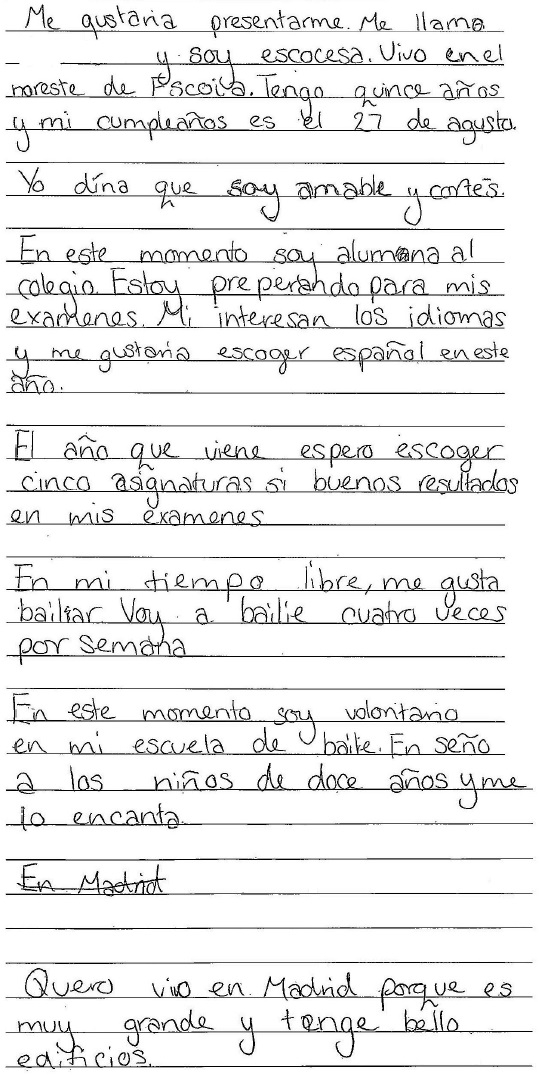 Me gustaria presentarme. Me llamo
y soy escocesa. Vivo en el
noreste de Escocia. Tengo quince años
y mi cumpleaños es el 27 de agusto.
Yo díria que soy amable y cortés.
En este momento soy alumana al
colegio. Estoy preperando para mis
examenes. Mi interesan los idiomas
y me gustaria escoger español en este
año.
El año que viene espero escoger
cinco asignaturas si buenos resultados
en mis examenes
En mi tiempo libre, me gusta
bailar Voy a bailie cuatro veces
por semana
En este momento soy volontario
en mi escuela de baile. En seño
a los niños de doce años y me
lo encanta.
En Madrid
Quero vivo en Madrid porque es
muy grande y tenge bello
edificios.